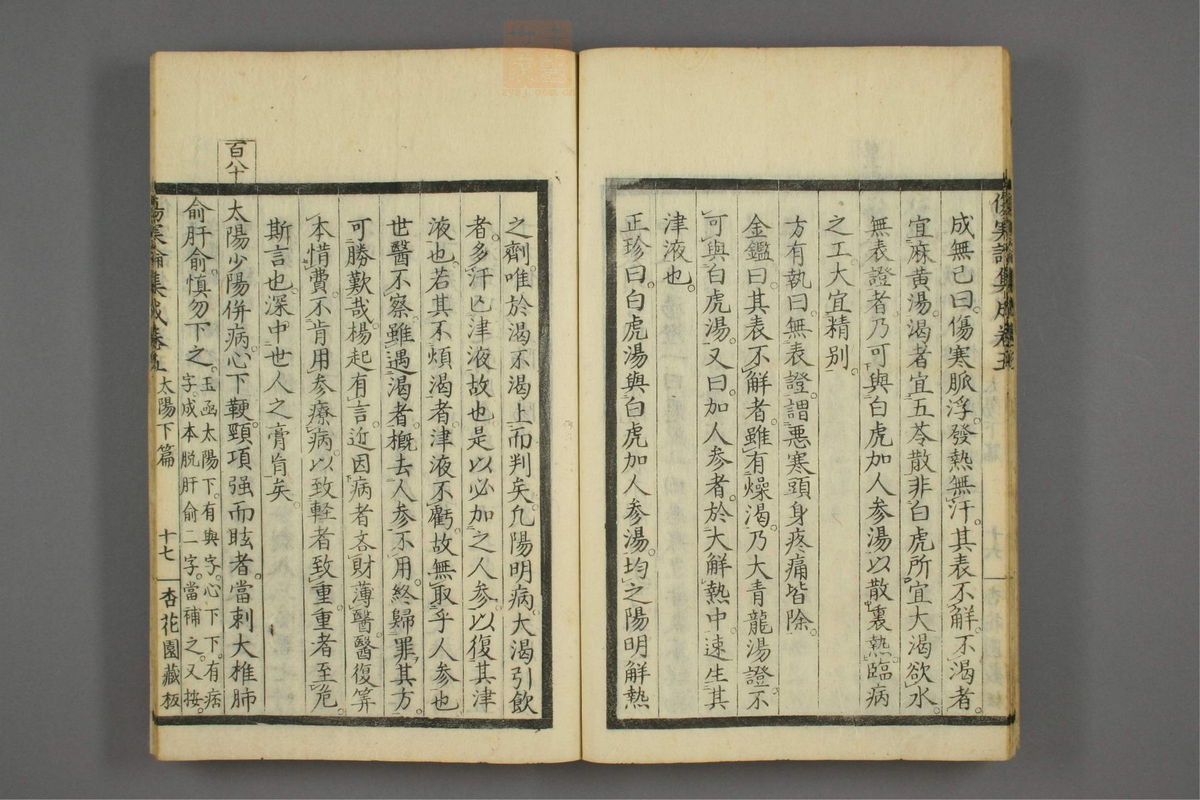 成無已曰。傷寒脈浮。發熱無汗。其表不解。不渴者。
宜麻黄湯。渴者宜五苓散。非白虎所宜。大渴欲水。
無表證者。乃可與白虎加人参湯。以散裏熱。臨病
之工大宜精別。
方有執曰。無表證。謂惡寒頭身疼痛皆除。
金鑑曰。其表不解者。雖有燥渴。乃大青龍湯證。不
可與白虎湯。又曰。加人参者。於大解熱中速生其
津液也。
正珍曰。白虎湯與白虎加人参湯。均之陽明解熱
之劑。唯於渴不渴上而判矣。凡陽明病。大渴引飲
者。多汗亡津液故也。是以必加之人参。以復其津
液也。若其不煩渴者。津液不虧。故無取乎人参也
世醫不察。雖遇渴者。概去人参不用。終歸罪其方。
可勝歎哉。楊起有言。近因病者吝財薄醫。醫復筭
本惜費。不肯用参療病。以致軽者致重。重者至危。
斯言也。深中世人之膏肓矣。
百八十
太陽少陽併病。心下鞕。頸項强而眩者。當刺大椎肺
俞肝俞。慎勿下之。玉函太陽下。有與字。心下下。有痞
字。成本脱肝俞二字。當補之。又按。
傷寒論集成卷五 太陽下篇 十七 杏花園藏板